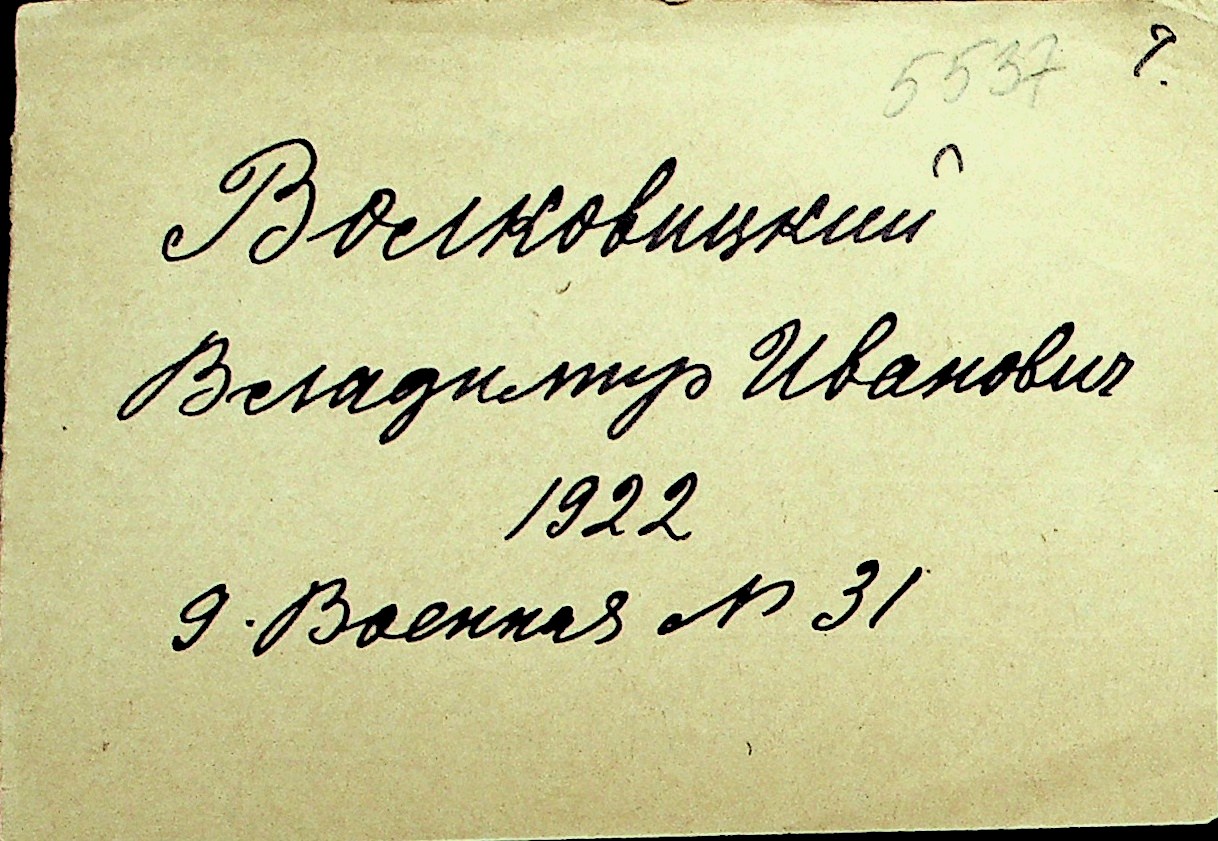 5537 9.
Волковицкий
Владимир Иванович
1922
9. Военная № 31